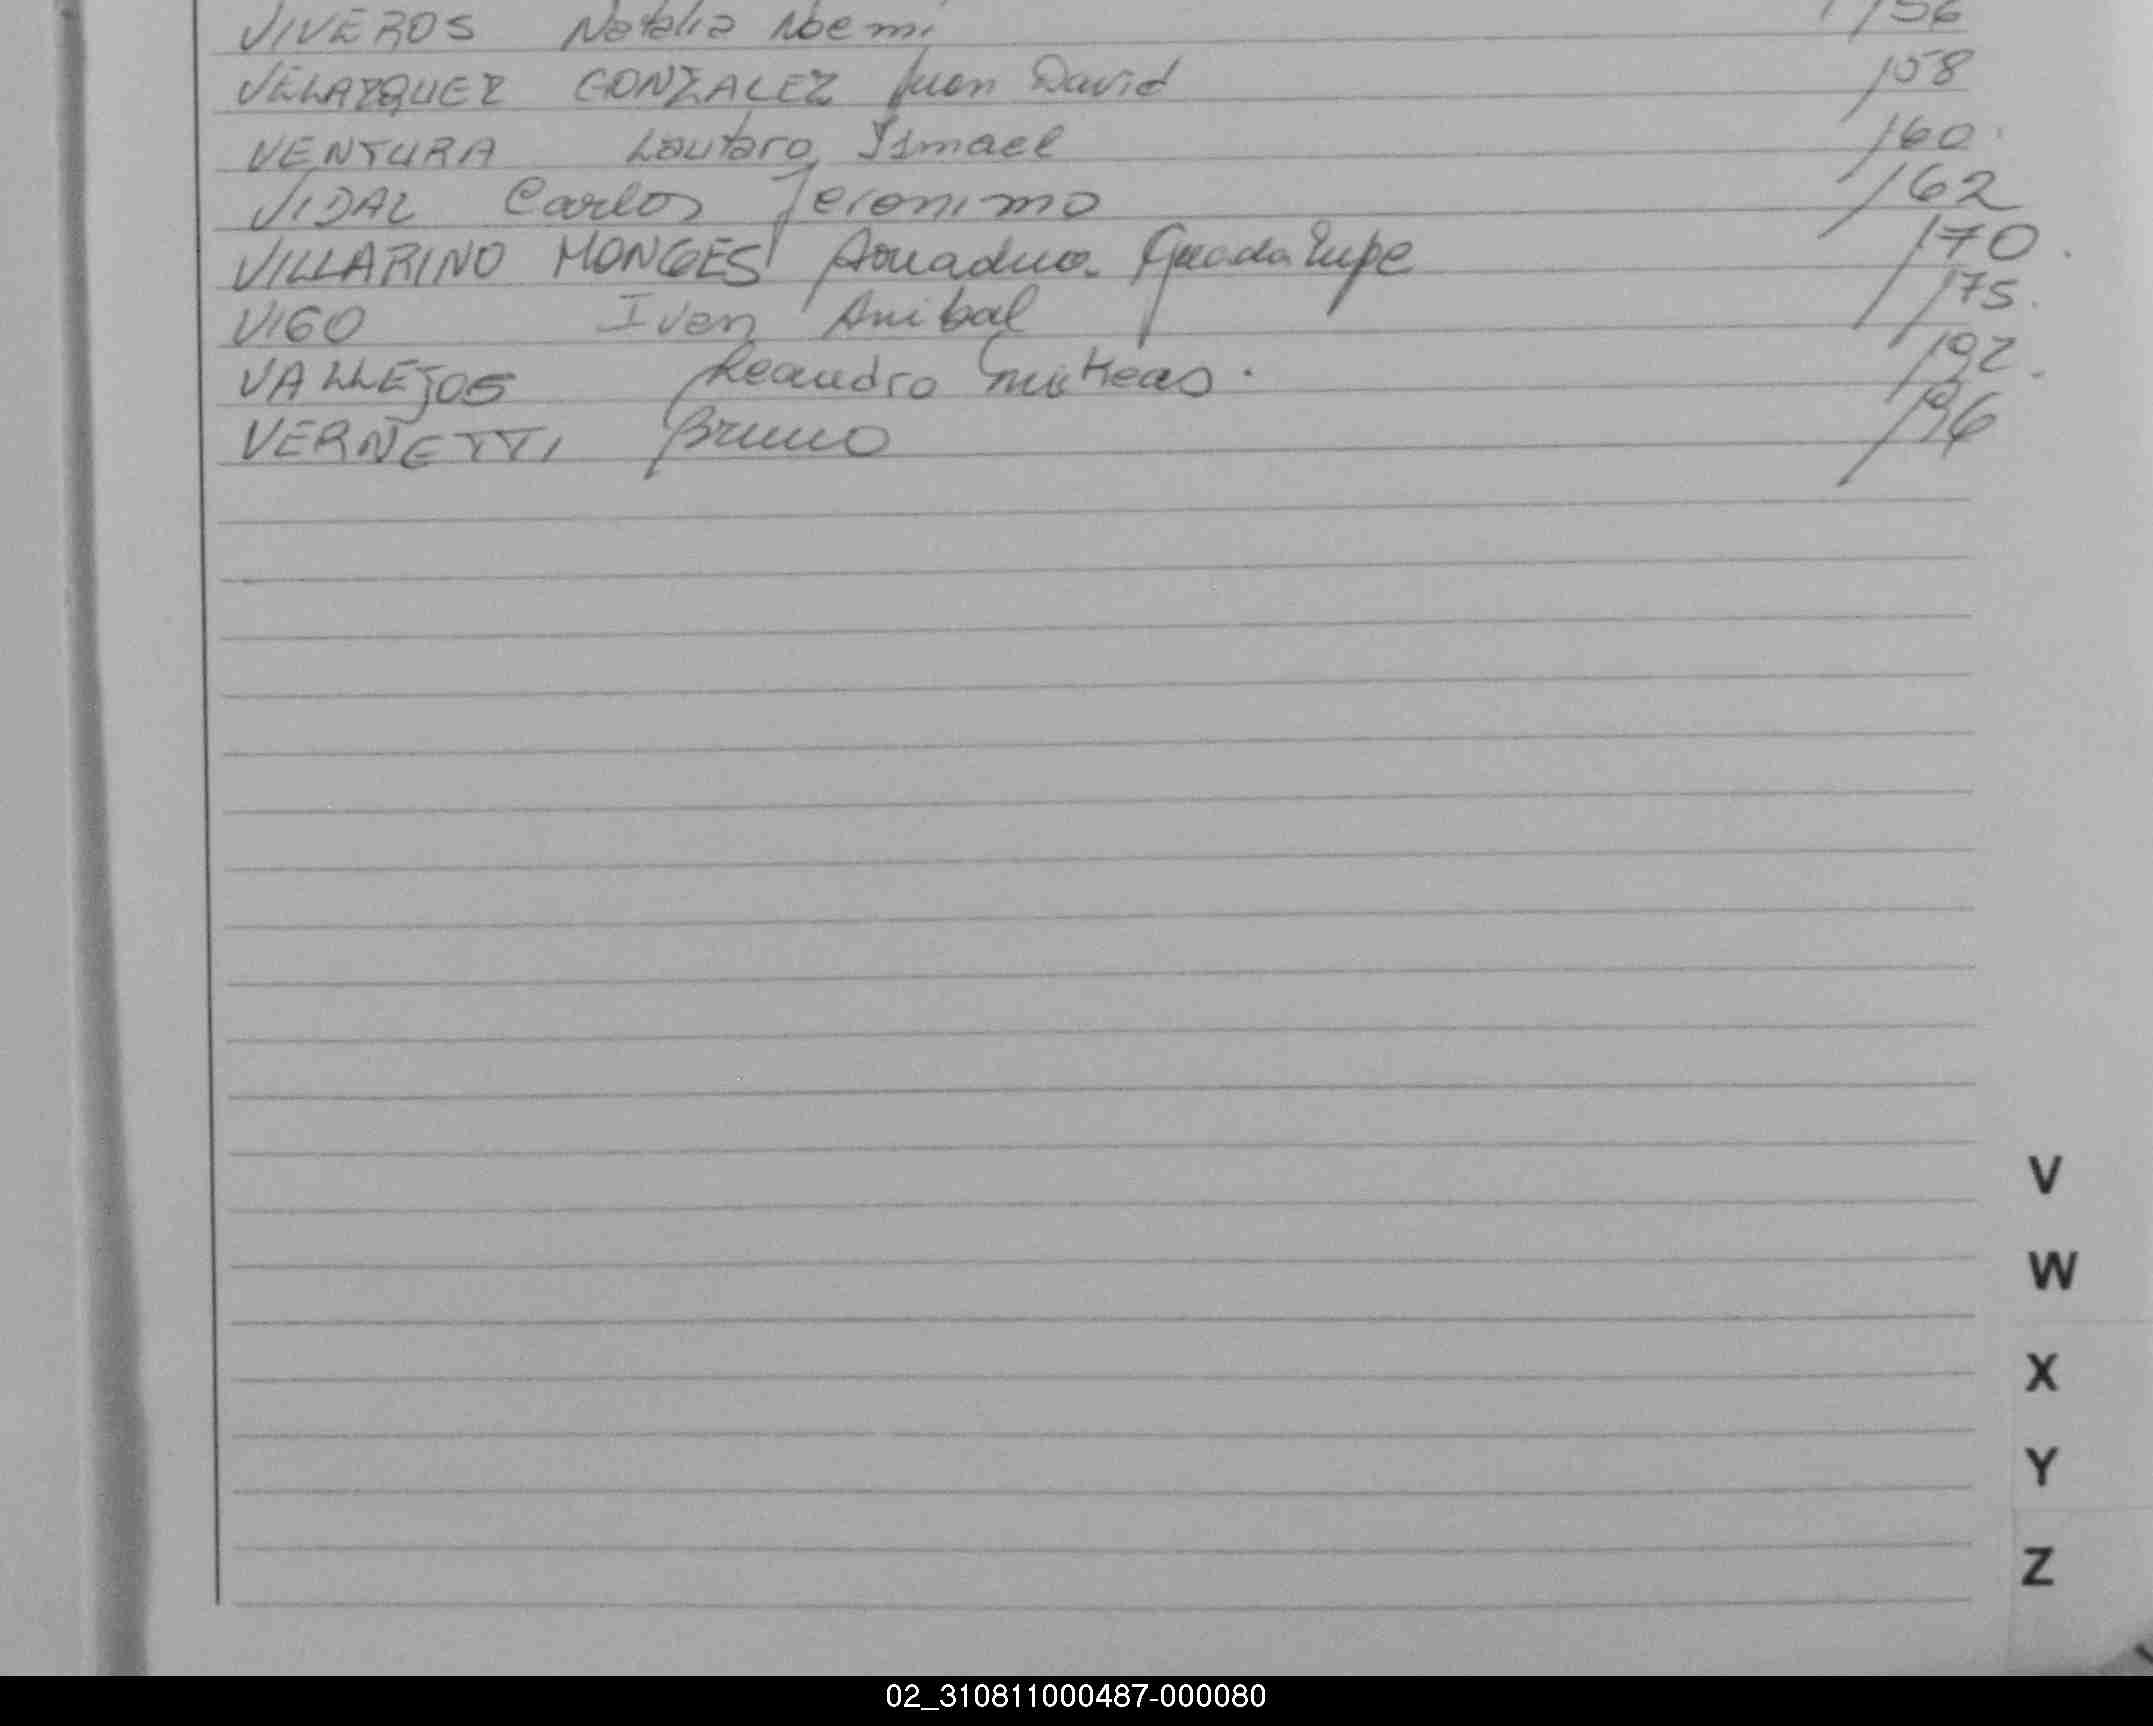 VIVEROS Natalia Noemi 156
VELAZQUEZ GONZALEZ Juan David 158
VENTURA Lautaro Ismael 160
VIDAL Carlos Jeronimo 162
VILLARINO MONGES Guadalupe 170
VIGO Ivan Anibal 175
VALLEJOS Leandro 192
VERNETTI Bruno 196
V
W
X
Y
Z
02_310811000487-000080